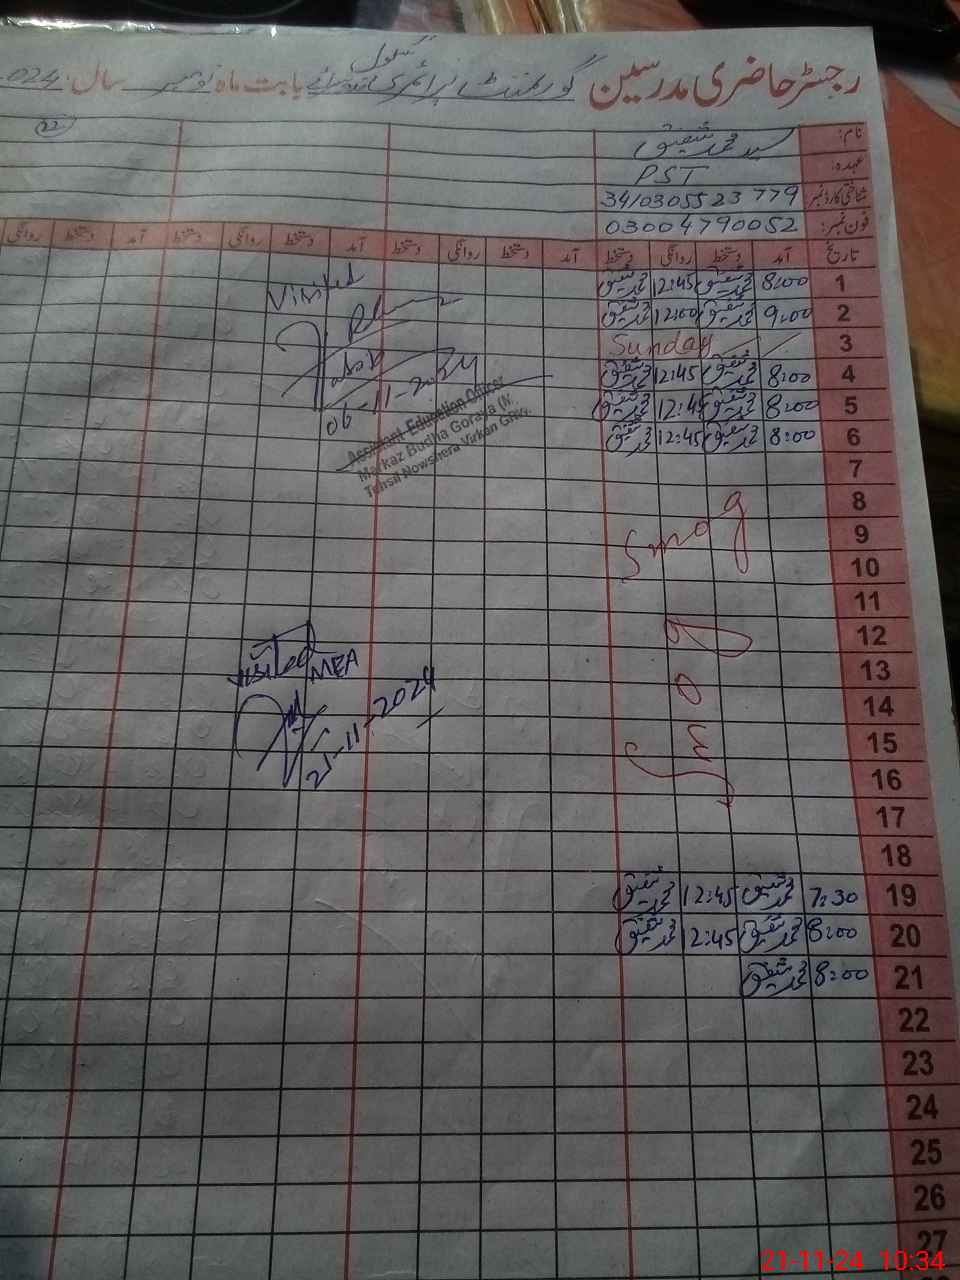 رجسٹر حاضری مدرسین گورنمنٹ پرائمری سکول بابت ماہ نومبر سال 024
22
نام: سید محمد شفیق
عہدہ: PST
شناختی کارڈ نمبر 3410305523779
فون نمبر: 03004790052
تاریخ آمد دستخط روانگی دستخط آمد دستخط روانگی دستخط آمد دستخط روانگی دستخط آمد دستخط روانگی
1 8:00 محمد شفیق 12:45 محمد شفیق
2 9:00 محمد شفیق 12:00 محمد شفیق
3 Sunday
4 8:00 محمد شفیق 12:45 محمد شفیق
5 8:00 محمد شفیق 12:45 محمد شفیق
6 8:00 محمد شفیق 12:45 محمد شفیق
7
8
9
10
11
12
13
14
15
16
17
18
19 7:30 محمد شفیق 12:45 محمد شفیق
20 8:00 محمد شفیق 12:45 محمد شفیق
21 8:00 محمد شفیق
22
23
24
25
26
27
Smog
Smog
Visited
06-11-2024
Assistant Education Officer
Markaz Budha Goraya (M.
Tehsil Nowshera Virkan Grw.
Visited
MEA
21-11-2024
21-11-24 10:34